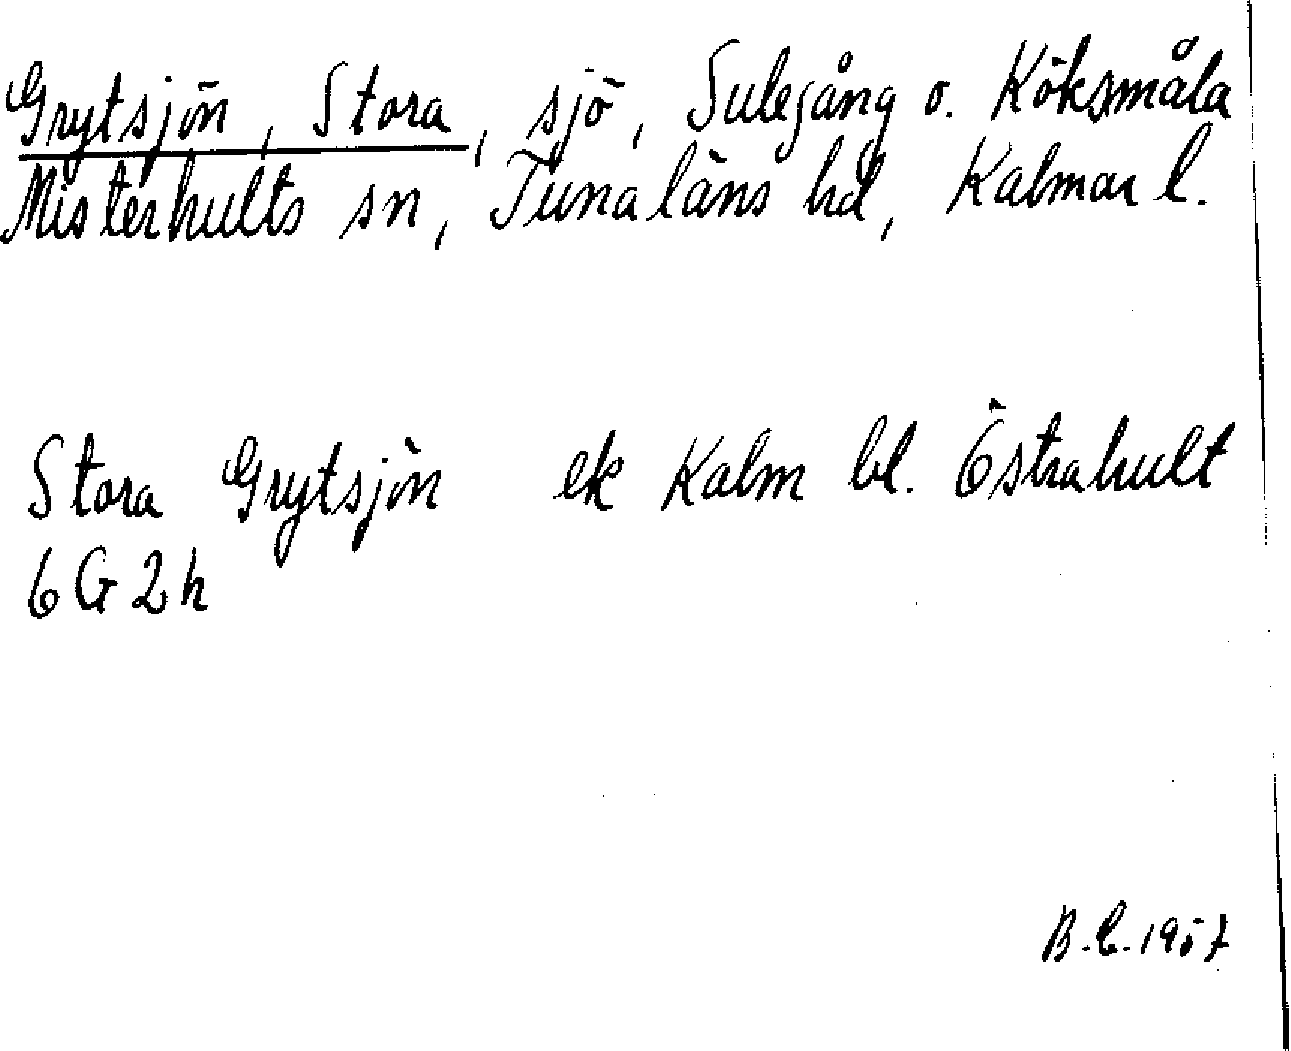 Grytsjön, Stora, sjö, Sulegång o. Köksmåla
Misterhults sn, Tunaläns hd, Kalmar l.
Stora Grytsjön ek Kalm bl. Östrahult
6G2h
B.E. 1957